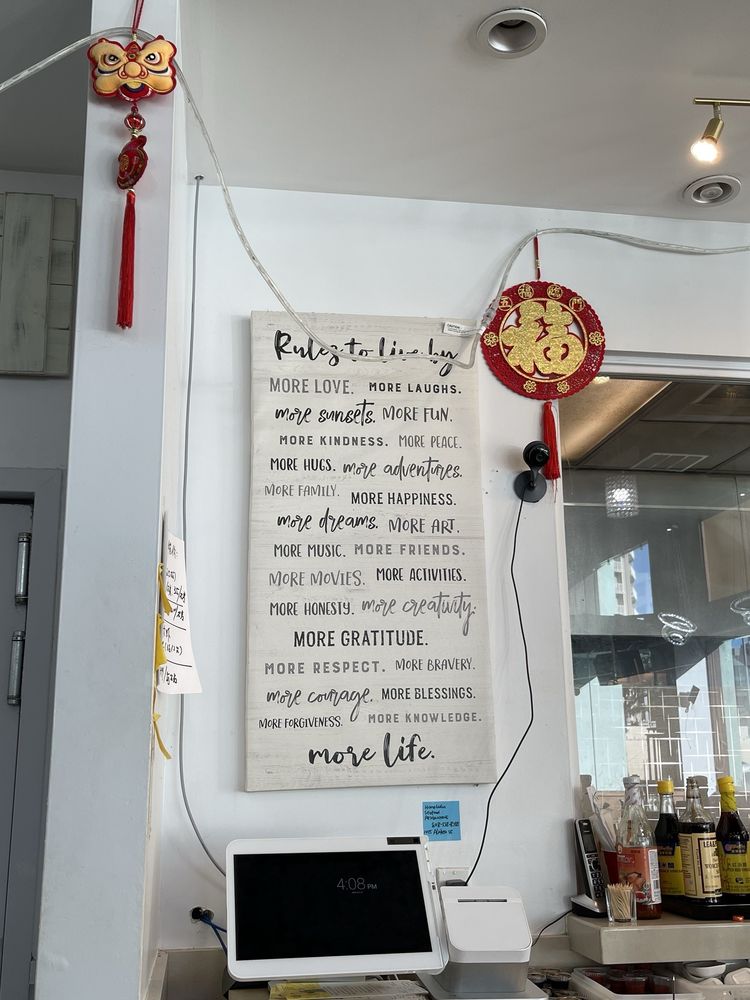 五福臨門
福
CAUTION
Rules to live by
MORE LOVE. MORE LAUGHS.
more sunsets. MORE FUN.
MORE KINDNESS. MORE PEACE.
MORE HUGS. more adventures.
MORE FAMILY. MORE HAPPINESS.
more dreams. MORE ART.
MORE MUSIC. MORE FRIENDS.
MORE MOVIES. MORE ACTIVITIES.
MORE HONESTY. more creativity.
MORE GRATITUDE.
MORE RESPECT. MORE BRAVERY.
more courage. MORE BLESSINGS.
MORE FORGIVENESS. MORE KNOWLEDGE.
more life.
Honolulu
Seafood
Restaurant
4:08 PM